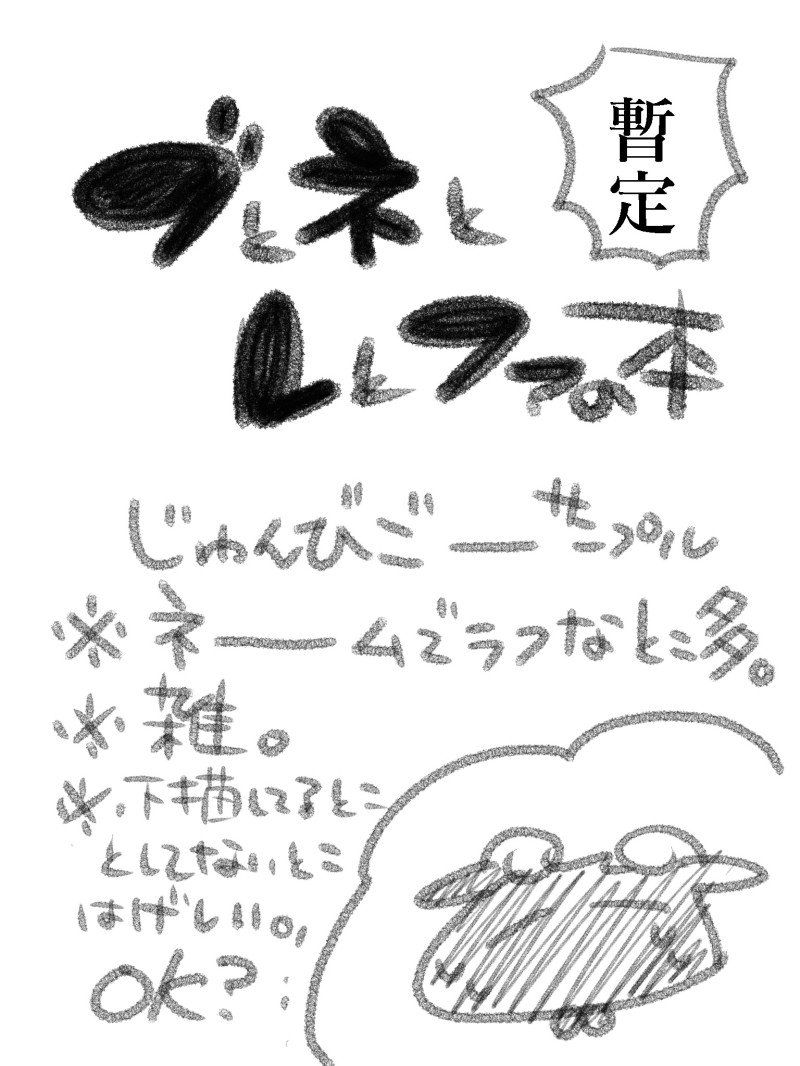 暫定
グとネと
レとフラの本
じゅんびごーサンプル
※ネームでラフなとこ多。
※雑。
※下描してるとこ
としてないとこ
はげしい。
OK?